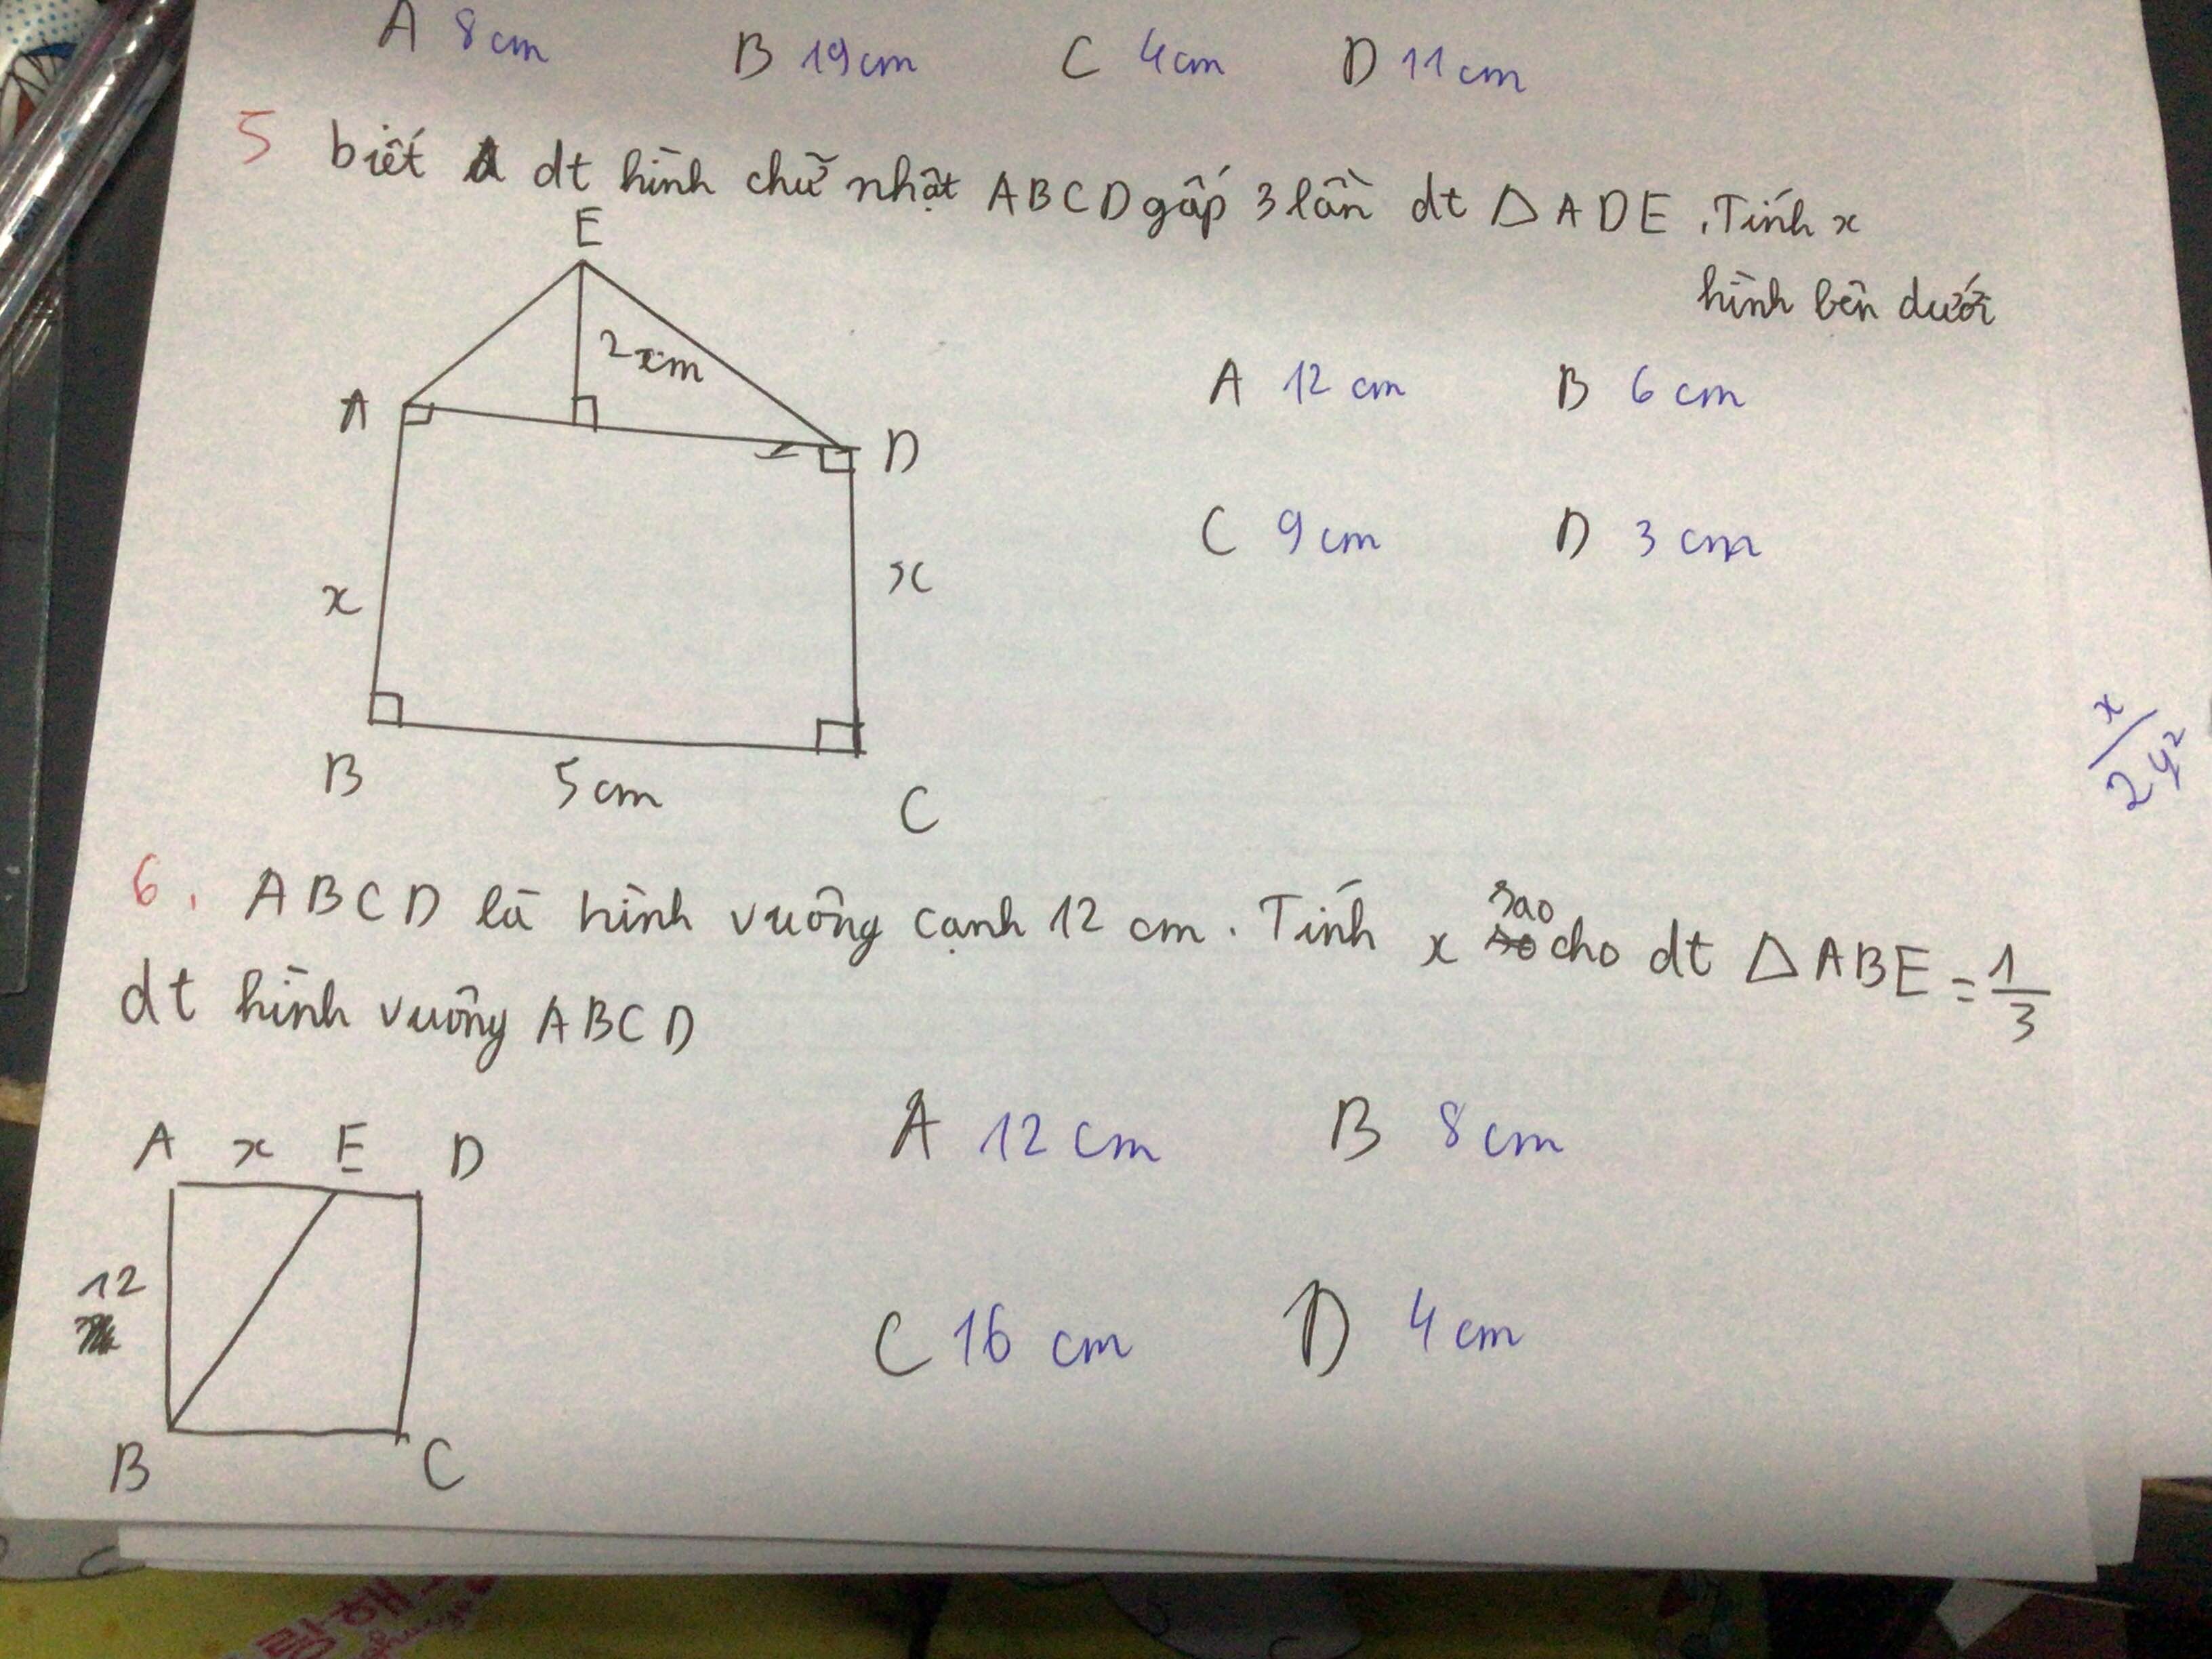 A 8cm B 19cm C 4cm D 11cm
5 biết dt hình chữ nhật ABCD gấp 3 lần dt △ADE. Tính x
hình bên dưới
E
2xm
A 12 cm B 6 cm
A D
C 9 cm D 3 cm
x x
B 5cm C
x
2y²
6. ABCD là hình vuông cạnh 12 cm. Tính x sao cho dt △ABE = 1/3
dt hình vuông ABCD
A x E D
A 12 cm B 8 cm
12
C 16 cm D 4 cm
B C